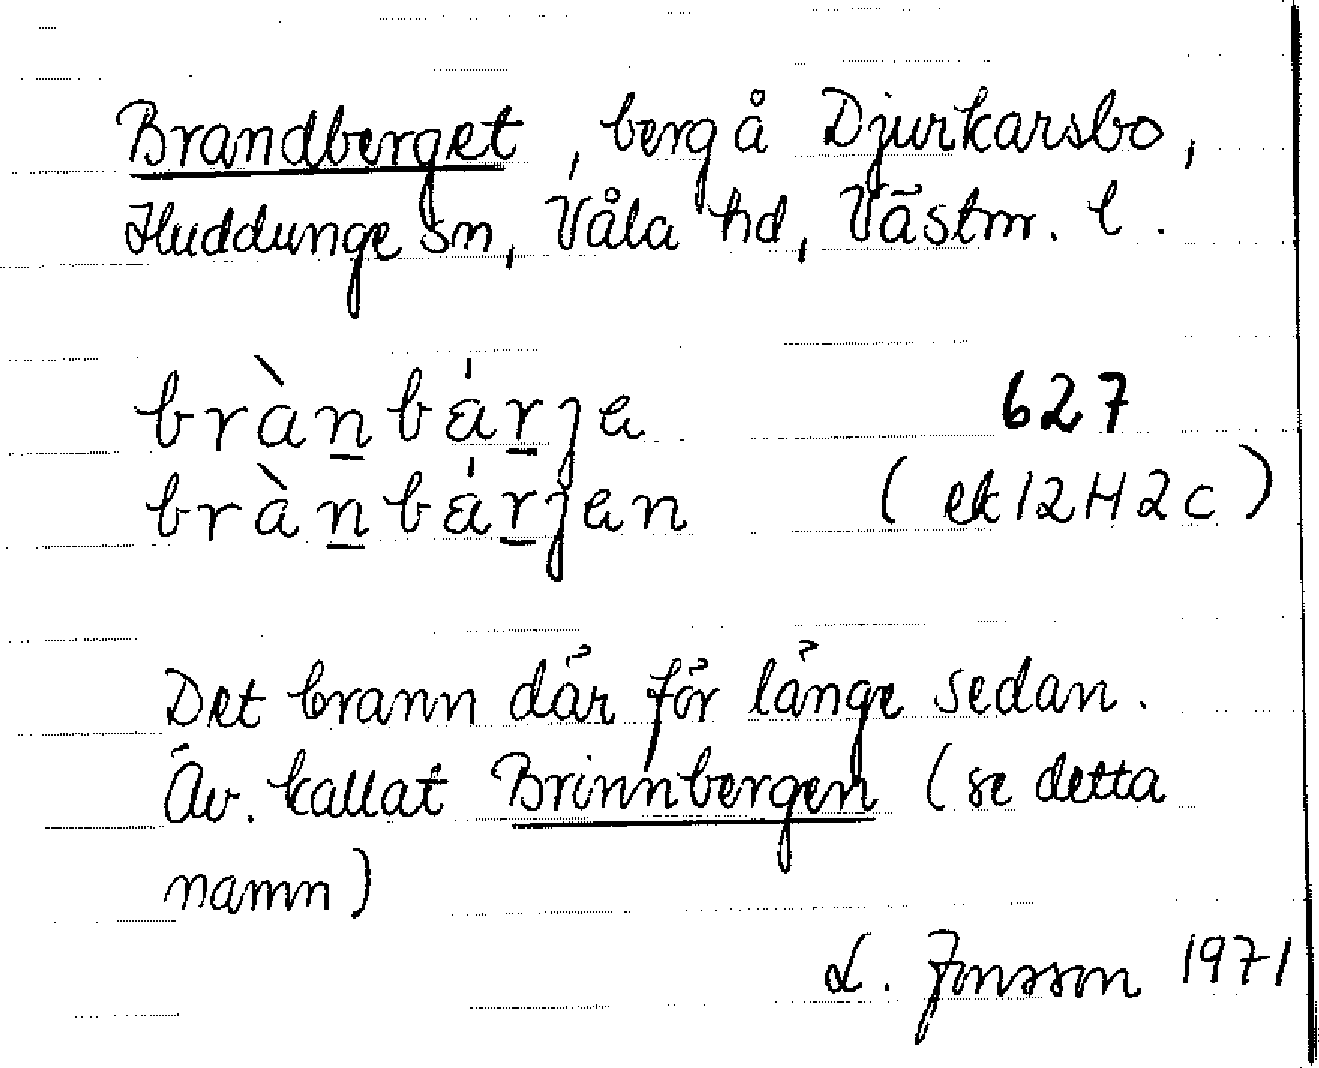 Brandberget, berg å Djurkarsbo,
Huddunge sn, Våla hd, Västm. l.
bràn̲bá̈r̲ja 627
bràn̲bá̈r̲jan (ek 12H2c)
Det brann där för länge sedan.
Äv. kallat Brinnbergen (se detta
namn)
L. Jonsson 1971